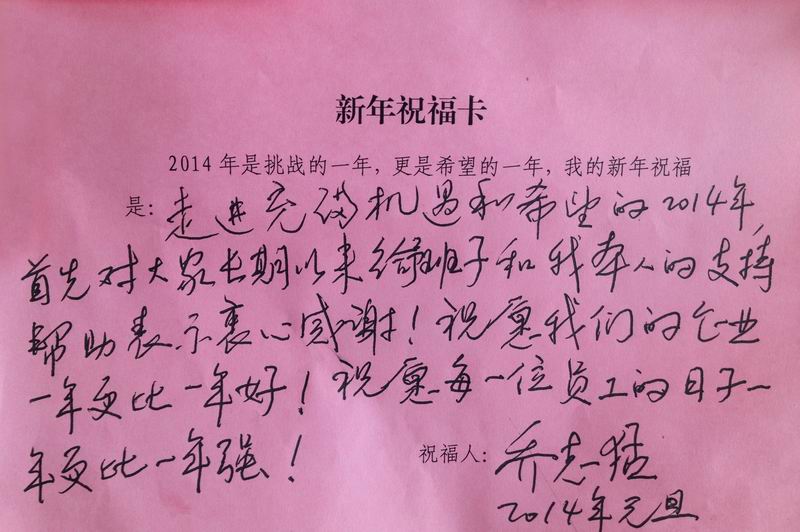 新年祝福卡
2014年是挑战的一年，更是希望的一年，我的新年祝福
是：走进充满机遇和希望的2014年，
首先对大家长期以来给班子和我本人的支持
帮助表示衷心感谢！祝愿我们的企业
一年更比一年好！祝愿每一位员工的日子一
年更比一年强！
祝福人：乔志猛
2014年元旦